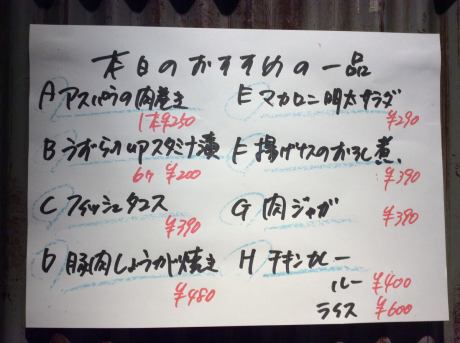 本日のおすすめの一品
A アスパラの肉巻き
1本¥250
B うずらの卵スタミナ漬
6ケ ¥200
C フィッシュタコス
¥390
D 豚肉しょうが焼き
¥480
E マカロニ明太サラダ
¥290
F 揚げナスのおろし煮
¥390
G 肉ジャガ
¥390
H チキンカレー
ルー ¥400
ライス ¥600